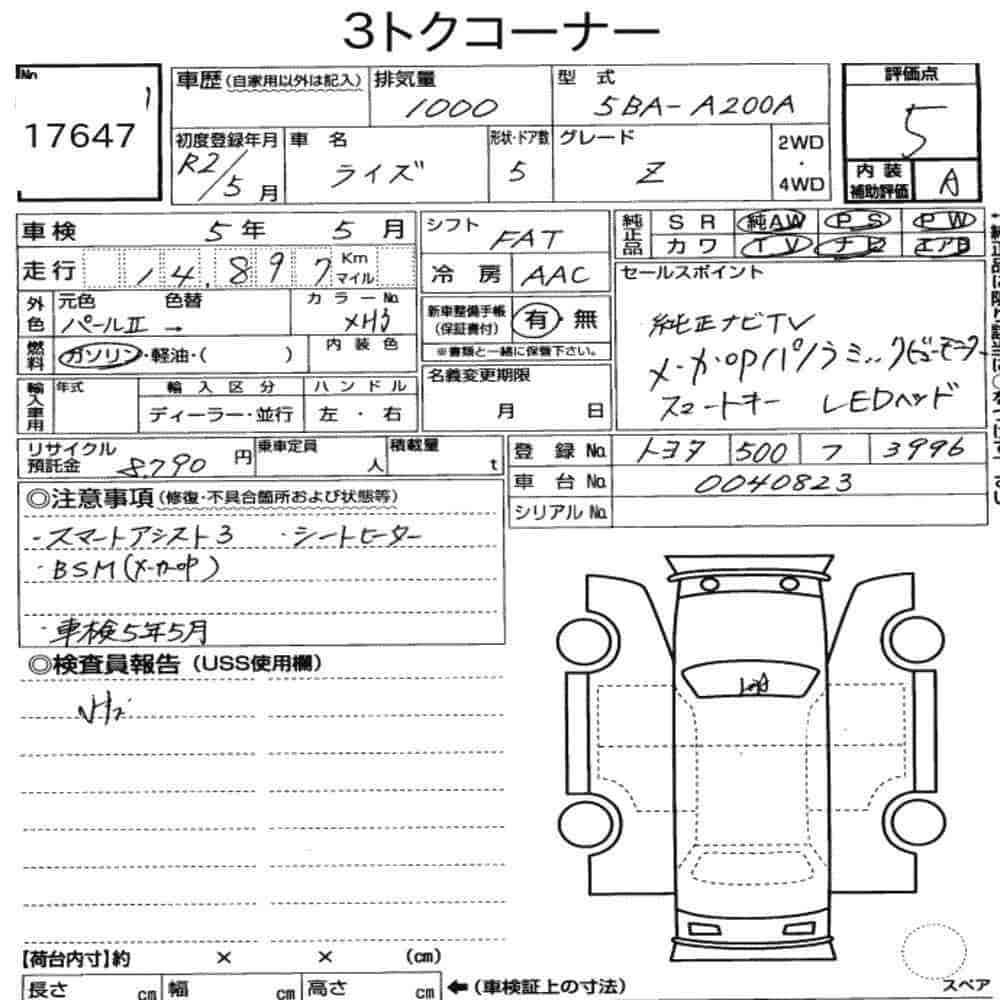 3トクコーナー
No.
17647
車歴(自家用以外は記入)
排気量
1000
型 式
5BA-A200A
評価点
5
初度登録年月
R2/5月
車 名
ライズ
形状・ドア数
5
グレード
Z
2WD
・
4WD
内装
補助評価
A
車検 5年 5月
走行 14,897 Km
マイル
シフト
FAT
冷房
AAC
純正品
SR 純AW PS PW
カワ TV ナビ エアB
外色
元色 色替
パールⅡ →
カラーNo.
XH3
燃料
ガソリン・軽油・( )
内装色
新車整備手帳
(保証書付)
有・無
※書類と一緒に保管下さい。
セールスポイント
純正ナビTV
メーカーopパノラミックビューモニター
スマートキー LEDヘッド
輸入車用
年式
輸入区分
ディーラー・並行
ハンドル
左・右
名義変更期限
月 日
リサイクル
預託金
8,790円
乗車定員
人
積載量
t
登録No.
トヨタ 500 フ 3996
車台No.
0040823
シリアルNo.
◎注意事項(修復・不具合箇所および状態等)
・スマートアシスト3 ・シートヒーター
・BSM(メーカーop)
・車検5年5月
◎検査員報告(USS使用欄)
【荷台内寸】約 × × (cm)
長さ cm 幅 cm 高さ cm ←(車検証上の寸法)
スペア